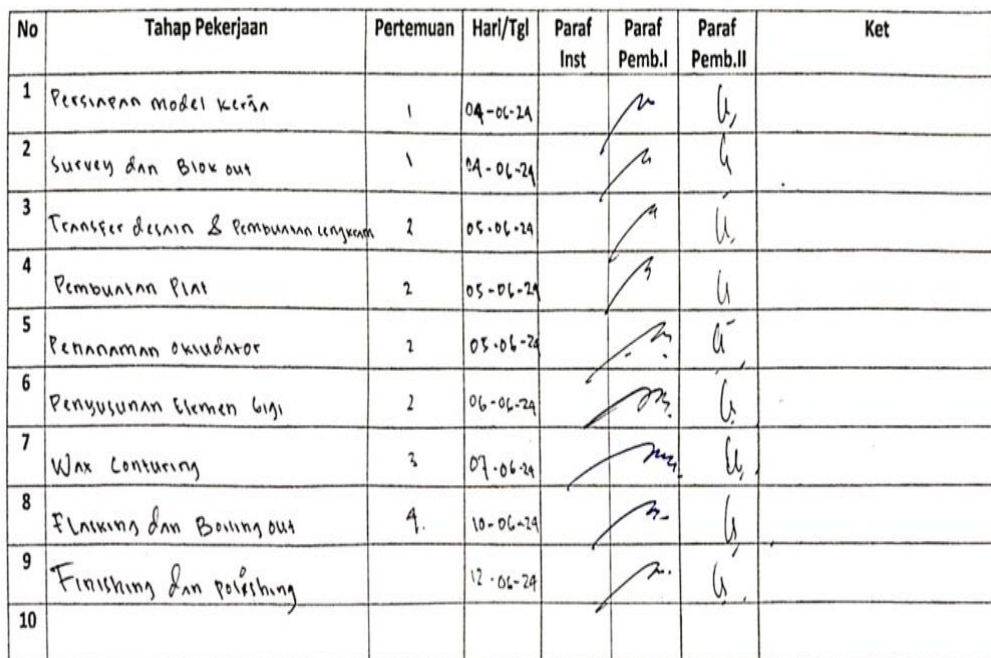 No Tahap Pekerjaan Pertemuan Hari/Tgl Paraf Inst Paraf Pemb.I Paraf Pemb.II Ket
1 Persiapan model kerja 1 04-06-24
2 Survey dan Blok out 1 04-06-24
3 Transfer desain & Pembuatan cengkram 2 05-06-24
4 Pembuatan Plat 2 05-06-24
5 Penanaman okludator 2 05-06-24
6 Penyusunan Elemen Gigi 2 06-06-24
7 Wax Conturing 3 07-06-24
8 Flasking dan Boiling out 4. 10-06-24
9 Finishing dan polishing 12-06-24
10